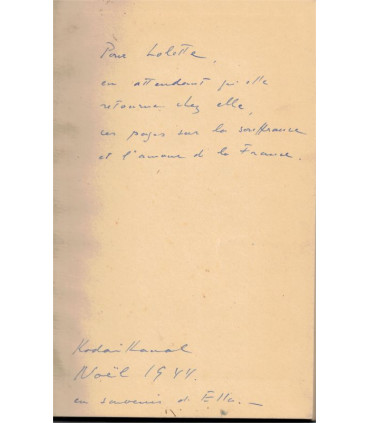 Pour Lolette,
en attendant qu'elle
retourne chez elle,
ces pages sur la souffrance
et l'amour de la France.
Kodaikanal
Noël 1944.
en souvenir d'Ella.—